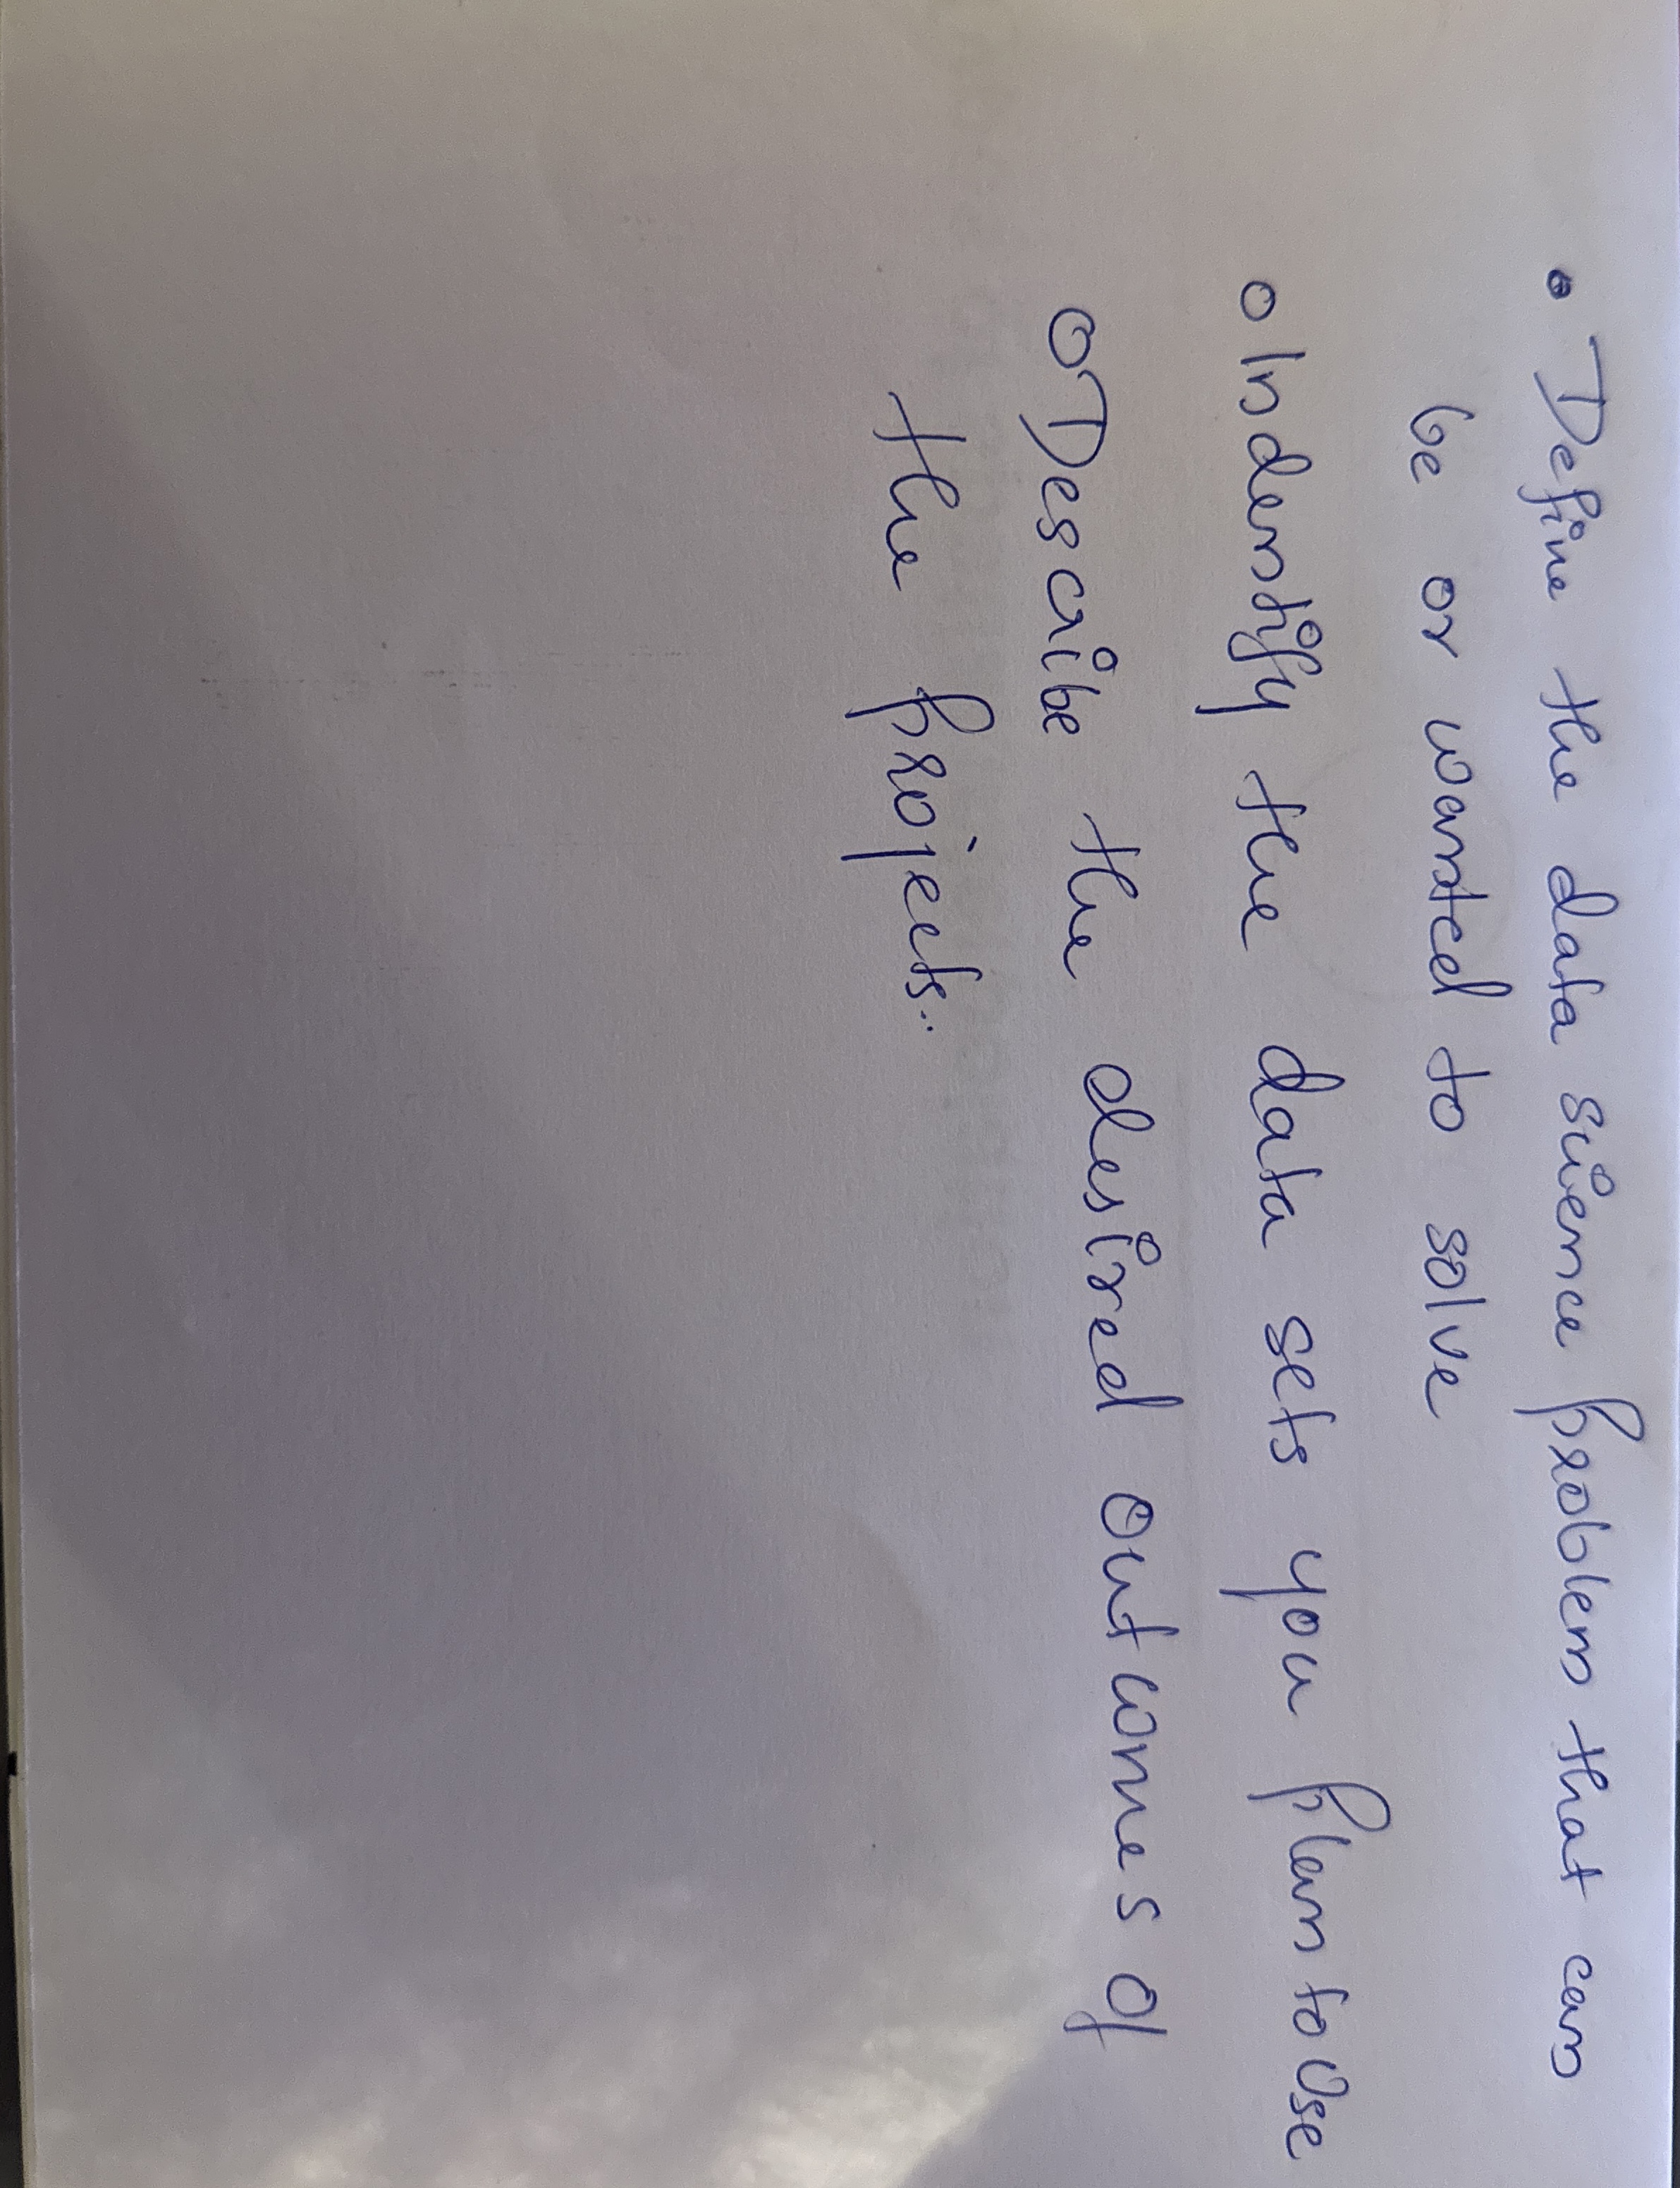 • Define the data science problem that can
be or wanted to solve
o Indentify the data sets you plan to use
o Describe the desired outcomes of
the projects..